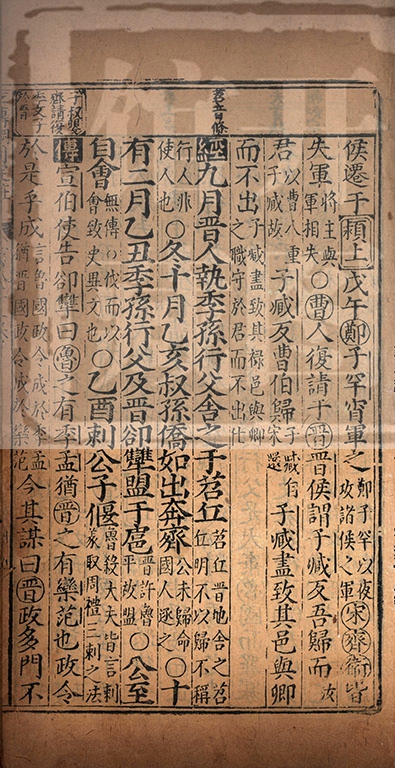 侯遷于潁上戊午鄭子罕宵軍之鄭子罕以夜攻諸侯之軍宋齊衛皆
失軍將主與軍相失○曹人復請于晉晉侯謂子臧反吾歸而汝
君以曹人重子臧故子臧反曹伯歸子臧自宋還子臧盡致其邑與卿
而不出子臧盡致其祿邑與卿之職守於君而不出仕
苕音條
經九月晉人執季孫行父舍之于苕丘苕丘晉地舍之苕丘明不以歸不稱
行人非使人也○冬十月乙亥叔孫僑如出奔齊公未歸命國人逐之○十
有二月乙丑季孫行父及晉郤犫盟于扈晉許魯平故盟○公至
自會無傳○伐而以會致史異文也○乙酉刺公子偃魯殺大夫皆言刺義取周禮三刺之法
子叔嬰齊請復季文子於晉
傳宣伯使告郤犫曰魯之有季孟猶晉之有欒范也政令
於是乎成言魯國政令成於季孟猶晉國政令成於欒范今其謀曰晉政多門不